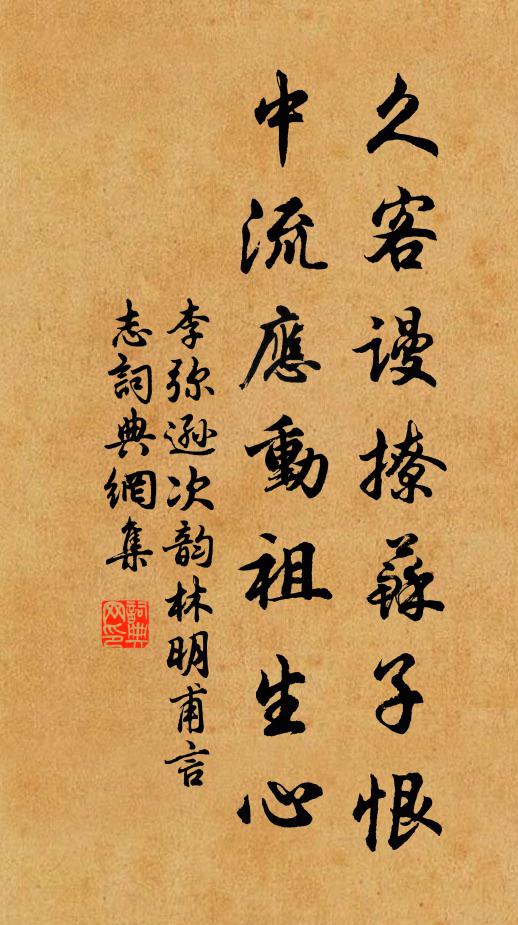 久客謾撩蘇子恨
中流應動祖生心
李弥遜次韵林明甫言
志詞典網集
詞典网印